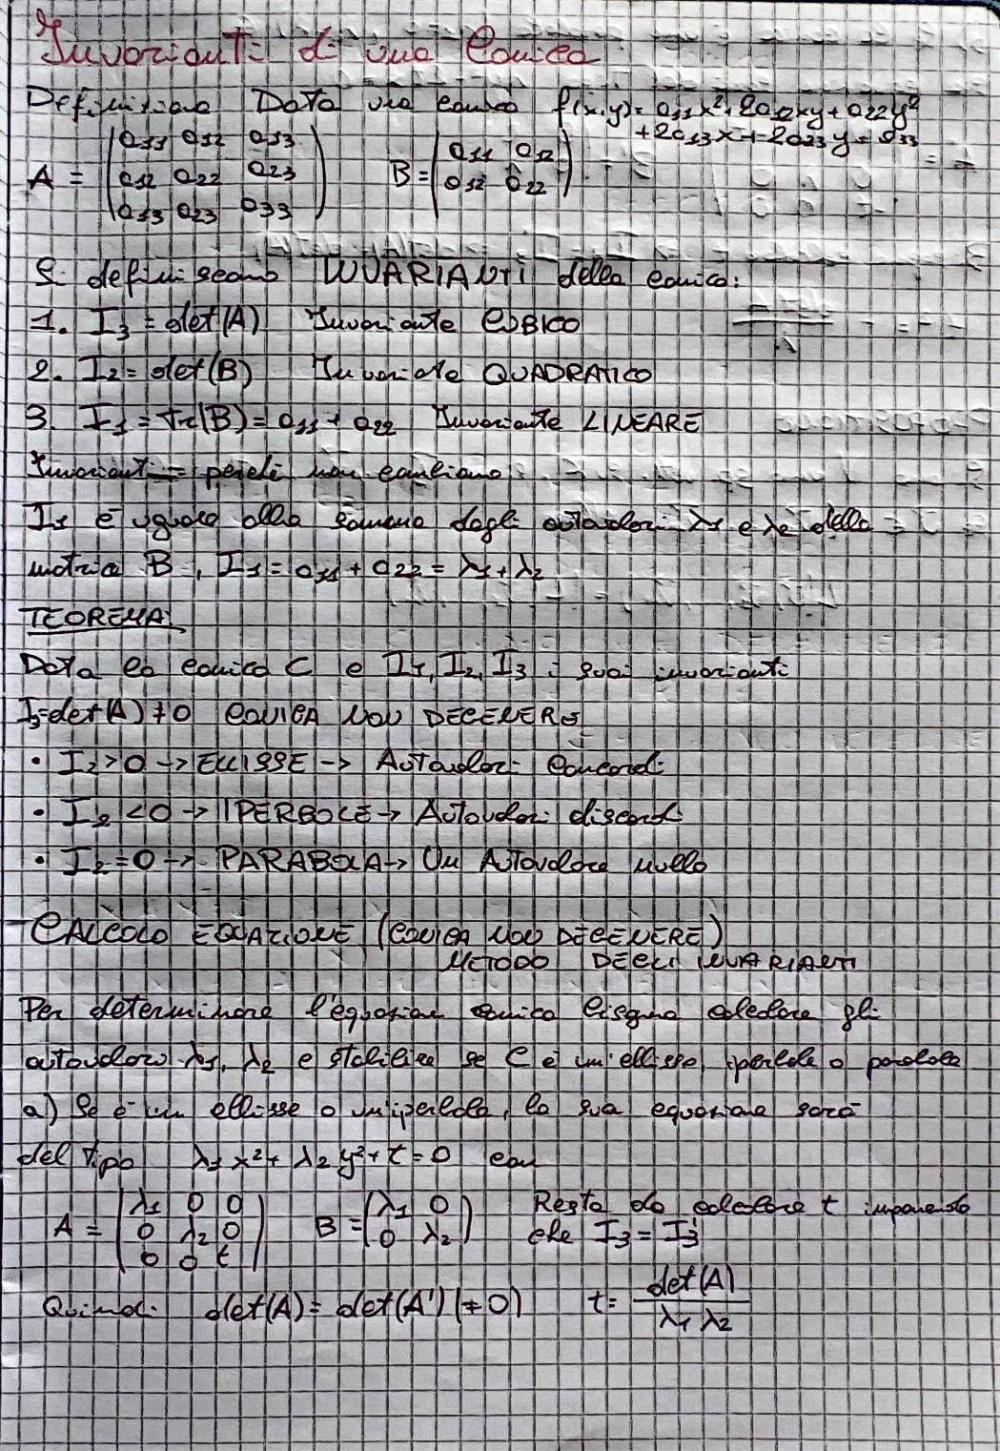 Invarianti di una Conica
Definizione Data una conica f(x,y)= a11x²+2a12xy+a22y²
+2a13x+2a23y=a33
A = (a11 a12 a13
a12 a22 a23
a33 a23 a33) B=(a11 a12
a12 a22)
Si definiscono INVARIANTI della conica:
1. I3 = det(A) Invariante CUBICO
2. I2= det(B) Invariante QUADRATICO
3. I1 = Tr(B) = a11 + a22 Invariante LINEARE
Invarianti = perché non cambiano
I1 è uguale alla somma degli autovalori λ1 e λ2 della
matrice B, I1 = a11 + a22 = λ1 + λ2
TEOREMA:
Data la conica C e I1, I2, I3 i suoi invarianti
I3=det(A) ≠0 CONICA NON DEGENERE
• I2>0 → ELLISSE → Autovalori Concordi
• I2 <0 → IPERBOLE → Autovalori discordi
• I2=0 → PARABOLA → Un Autovalore nullo
CALCOLO EQUAZIONE (CONICA NON DEGENERE)
METODO DEGLI INVARIANTI
Per determinare l'equazione conica bisogna calcolare gli
autovalori λ1, λ2 e stabilire se C è un'ellisse, iperbole o parabola
a) Se è un ellisse o un'iperbole, la sua equazione sarà
del tipo λ1 x² + λ2 y² + t = 0 con
A = (λ1 0 0
0 λ2 0
0 0 t) B = (λ1 0
0 λ2) Resta da calcolare t imponendo
che I3 = I3'
Quindi: det(A) = det(A') (≠0) t= det(A)
λ1 λ2